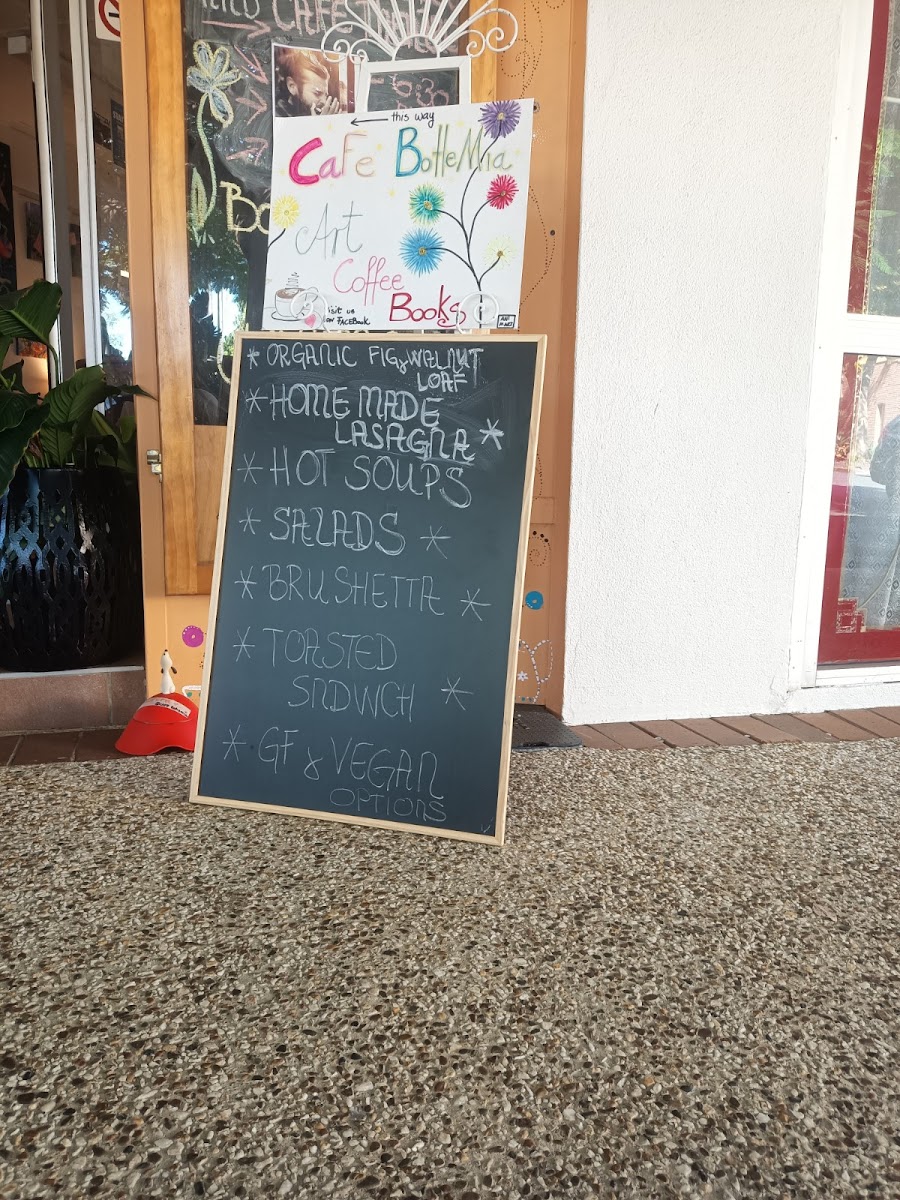 CAFE
6:30
← this way
CaFe BoHeMia
Bo
Art
Coffee
Books
Visit us
ON FACEBOOK
* ORGANIC FIG & WALNUT
LOAF
* HOME MADE
LASAGNA *
* HOT SOUPS
* SALADS *
* BRUSHETTA *
* TOASTED
SNDWCH *
* GF & VEGAN
OPTIONS